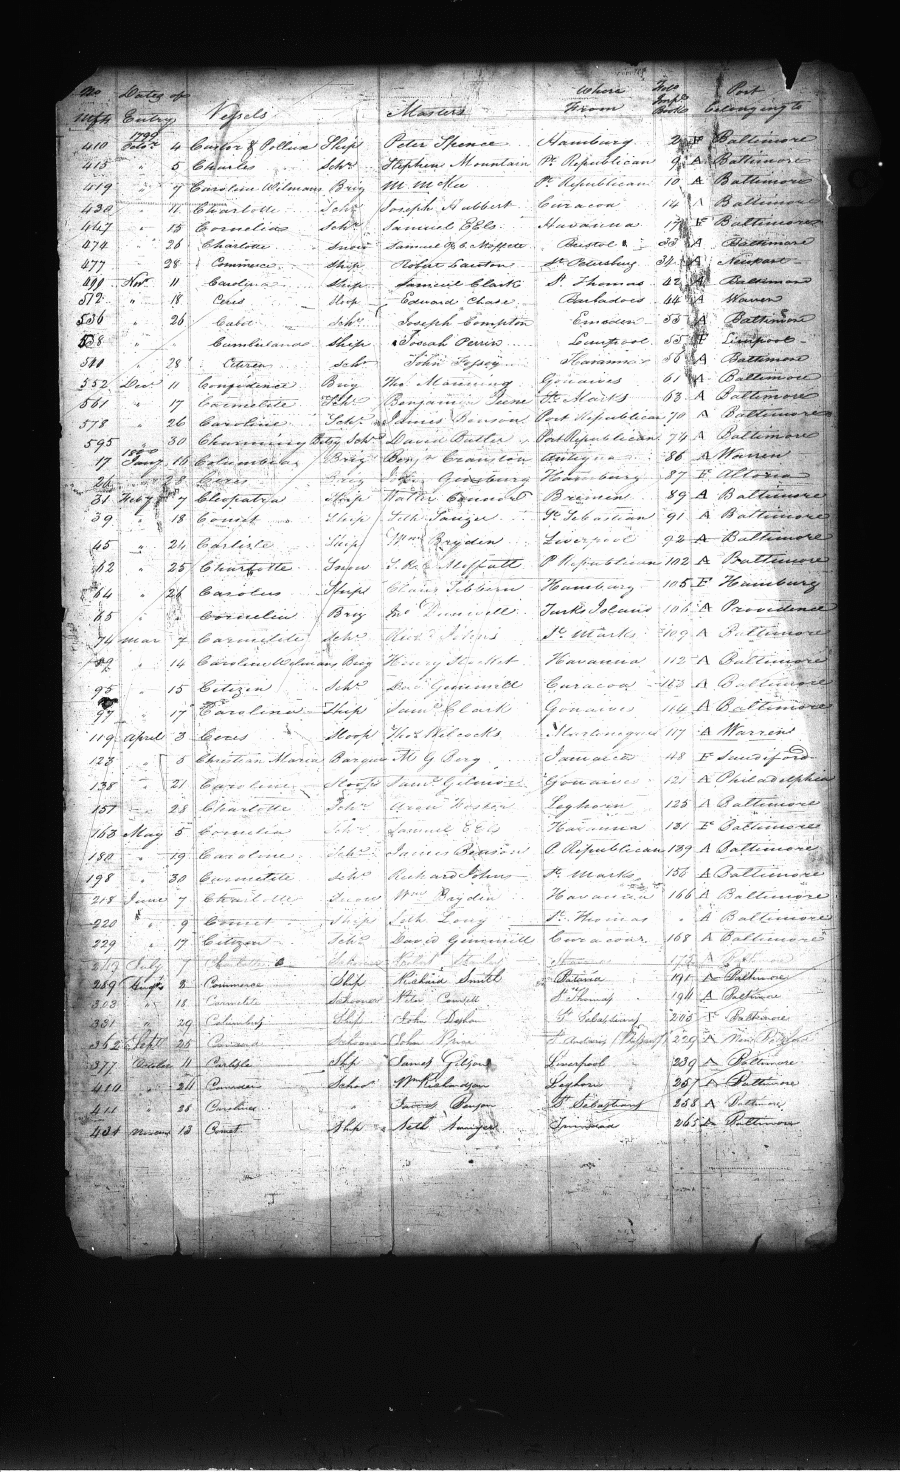 No Dates of Where Folo Port
Mfts Entry Vessels Masters From Book belonging to
1799
410 4 Castor & Pollux Ship Peter Spence Hamburg 2 F Baltimore
415 " 5 Charles Schr Stephen Mountain Pt Republican 9 A Baltimore
419 " 7 Caroline Wilmans Brig M McKee Pt Republican 10 A Baltimore
430 " 11 Charlotte Schr Joseph Hubbert Curacoa 14 A Baltimore
447 " 15 Cornelius Schr Samuel Ells Havanna 17 F Baltimore
474 " 26 Charlotte Snow Samuel Bristol 33 A Baltimore
477 " 28 Commerce Ship Robert Lawton St Petersburg 34 A Newport
490 Nov 11 Carolina Ship Samuel Clark St Thomas 42 A Baltimore
512 " 18 Ceres Slop Edward Chase Barbadoes 44 A Warren
536 " 26 Cabot Schr Joseph Compton Emeden 53 A Baltimore
538 " Cumberland Ship Josiah Perrin Liverpool 55 F Liverpool
540 28 Citizen Schr John Havanna 56 A Baltimore
552 Decr 11 Confidence Brig Tho Manning Gonaives 61 A Baltimore
561 " 17 Carmelite Schr Benjamin St Marks 63 A Baltimore
578 " 26 Caroline Schr James Benson Port Republican 70 A Baltimore
595 30 Charming Betsy Schr David Butler Port Republican 74 A Baltimore
1800
17 Jany 16 Columbia Brig Benjn Cranston Antigua 86 A Warren
26 " 28 Ceres Brig Ginsburg Hamburg 87 F Altona
31 Feby 7 Cleopatra Ship Walter Bremen 89 A Baltimore
39 " 18 Comet Ship Seth Sanger St Sebastian 91 A Baltimore
45 " 24 Carlisle Ship Wm Bryden Liverpool 92 A Baltimore
62 " 25 Charlotte Snow Moffatt P Republican 102 A Baltimore
64 " 26 Carolus Ships Claus Tibbern Hamburg 105 F Hamburg
65 " Cornelia Brig Jno Turks Island 106 A Providence
74 Mar 7 Carmelite Schr Richd Johns St Marks 109 A Baltimore
89 " 14 Caroline Wilmans Brig Henry Havanna 112 A Baltimore
95 " 15 Citizen Schr Davd Gemmill Curacoa 113 A Baltimore
97 " 17 Carolina Ship Saml Clark Gonaives 114 A Baltimore
119 April 3 Ceres Sloop Thos Wilcocks Martinique 117 A Warren
123 " 5 Christian Maria Barque M G Berg Jamaica 48 F
138 " 21 Caroline Sloops Saml Gilmore Gonaives 121 A Philadelphia
157 " 28 Charlotte Schr Leghorn 125 A Baltimore
163 May 5 Cornelia Schr Samuel Ells Havanna 131 F Baltimore
180 " 19 Caroline Schr James Benson P Republican 139 A Baltimore
198 " 30 Carmelite Schr Richard Johns St Marks 156 A Baltimore
218 June 7 Charlotte Snow Wm Bryden Havanna 166 A Baltimore
220 " 9 Comet Ship Seth Long St Thomas " A Baltimore
229 " 17 Citizen Schr David Gemmill Curacoa 168 A Baltimore
249 July 1 Charlotte Schooner Robert 175 A Baltimore
289 Augt 8 Commerce Ship Richard Smith Batavia 191 A Baltimore
303 " 18 Carmelite Schooner Peter St Thomas 194 A Baltimore
331 " 29 Columbus Ship John St Sebastians 205 F Baltimore
362 Sept 25 Concord Schooner John 229 A New
377 October 11 Carlisle Ship James Liverpool 239 A Baltimore
414 " 24 Camden School Wm Richardson Leghorn 257 A Baltimore
411 " 25 Caroline " James Benson St Sebastians 258 A Baltimore
431 13 Comet Ship Seth Sanger Trinidad 265 A Baltimore